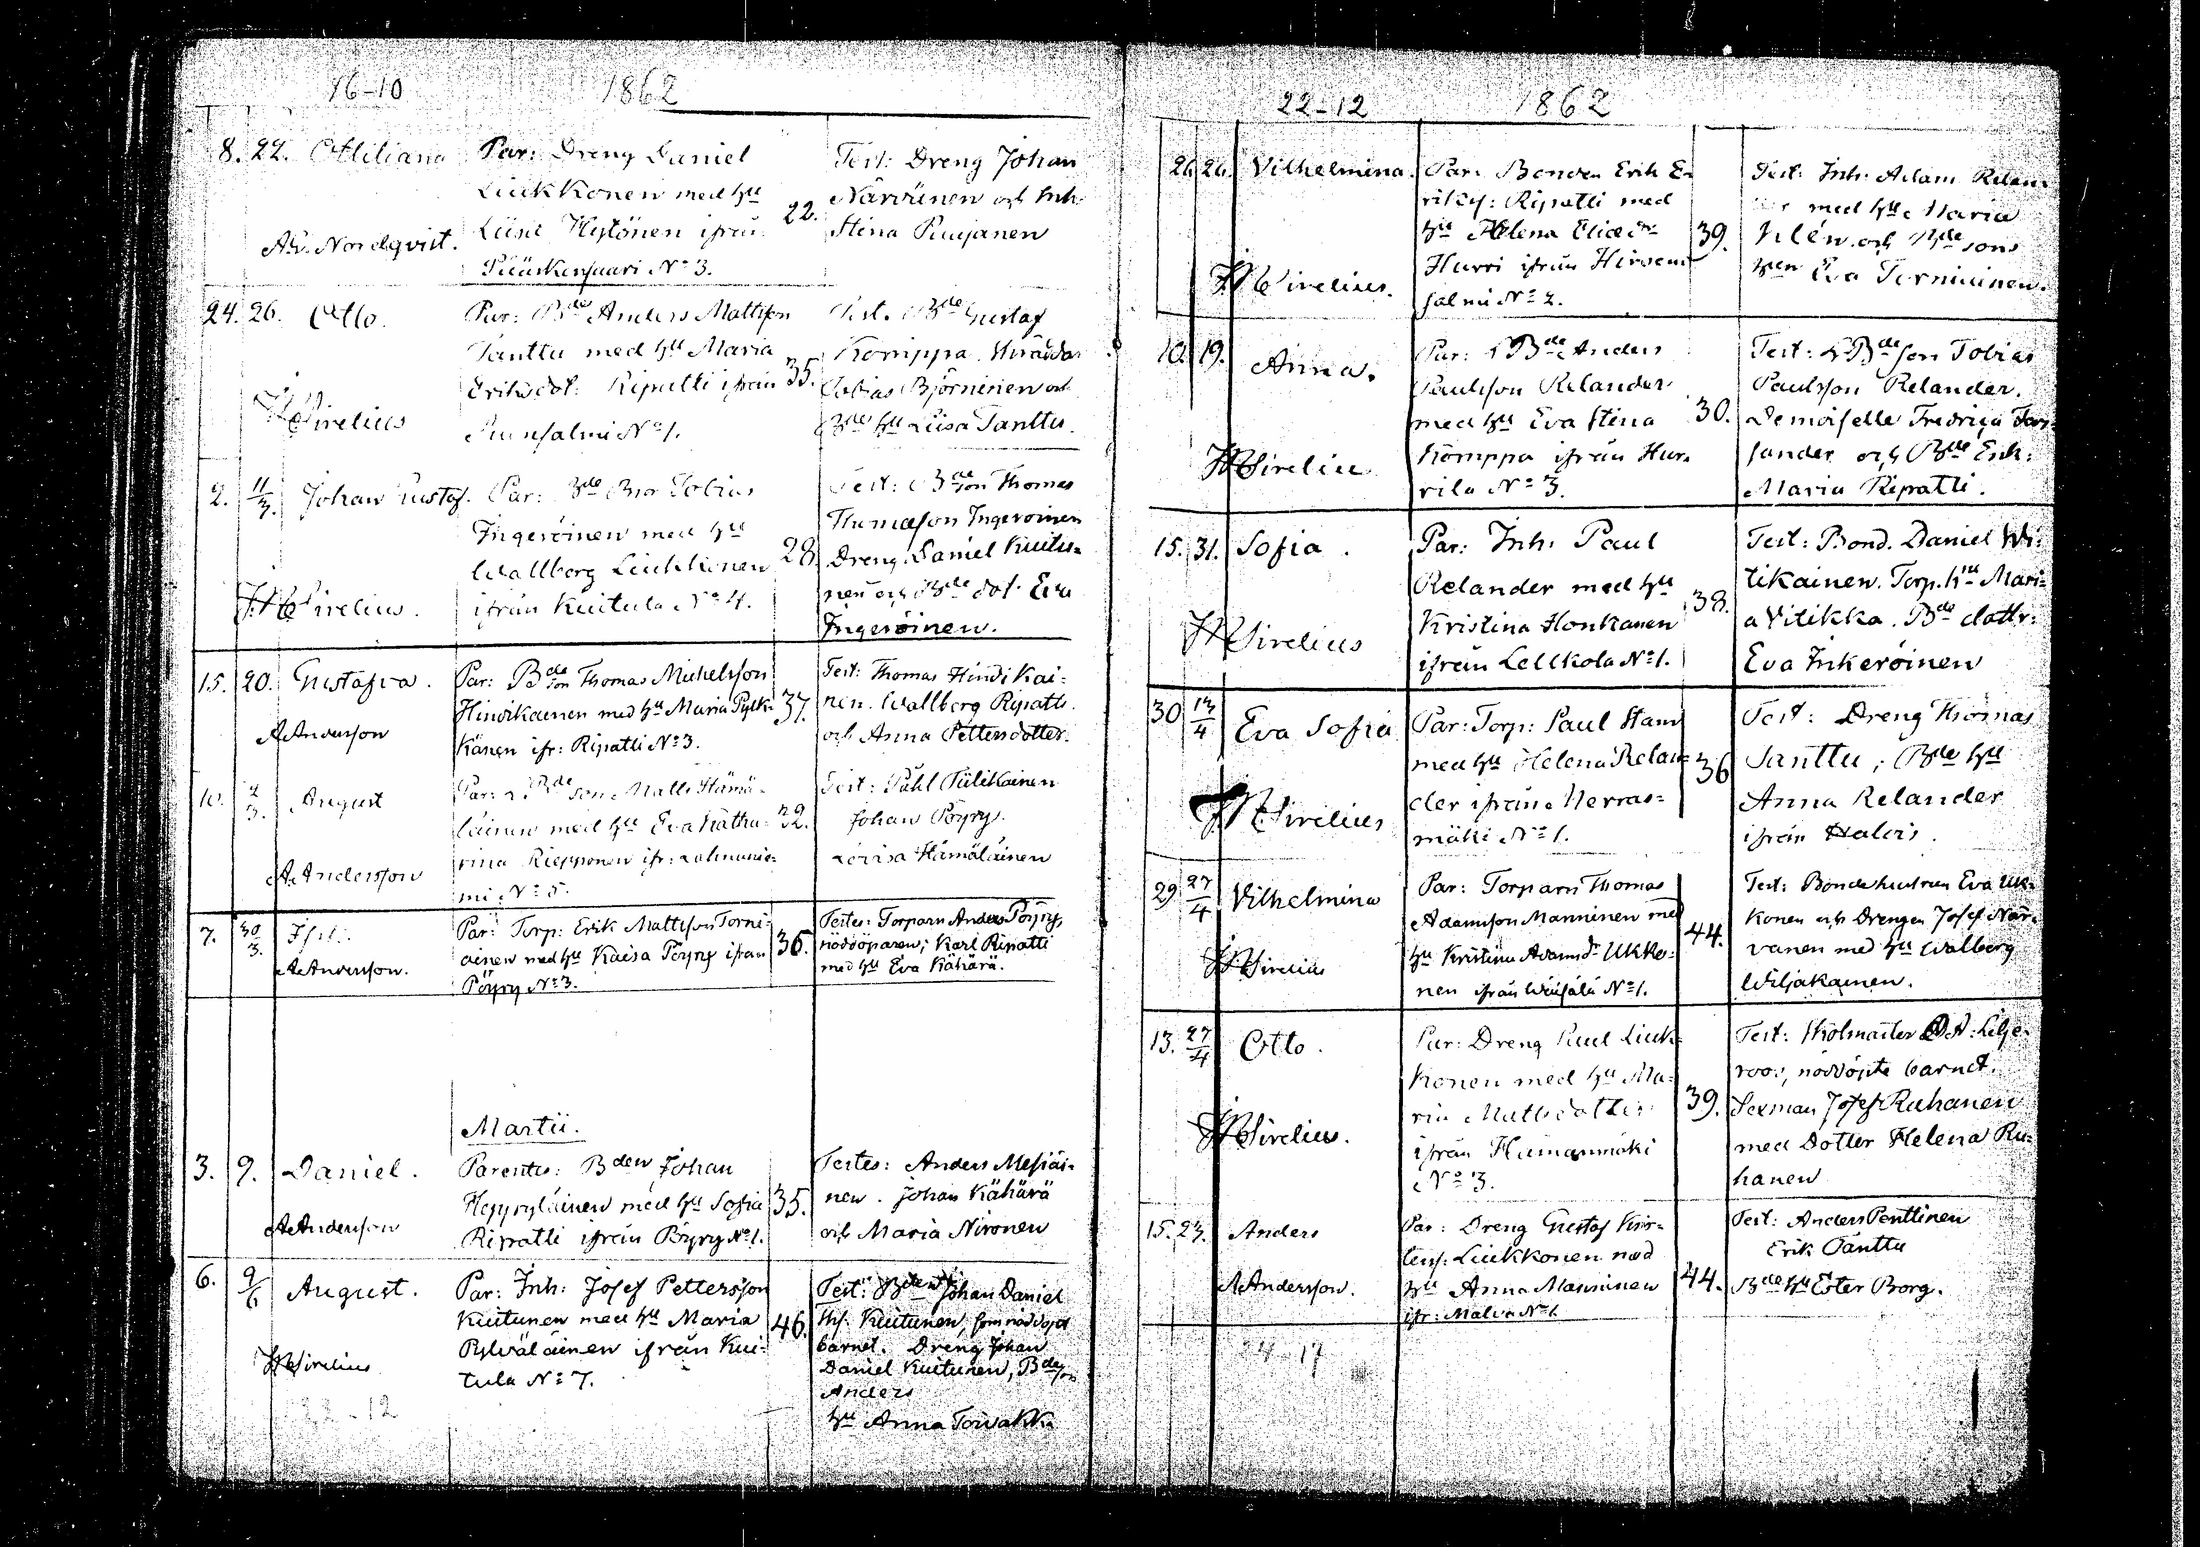 16-10 1862
8. 22. Ottiliana Par: Dreng Daniel
Liukkonen med hu
Liisa Hytönen ifrån 22.
Test: Dreng Johan
Närvänen och Inh.
Stina Pursjanen
A. Nordqvist.
Pääskensaari No 3.
24. 26. Otto. Par: Bde Anders Mattsson
Tanttu med hu Maria
Eriksdot: Ripatti ifrån 35.
Punsalmi No 1.
Test. Bde Gustaf
Komppa.
Tobias Björninen och
Bde hu Liisa Tanttu.
Sirelius
2. 11/3. Johan Gustaf. Par: Bde Bror Tobias
Ingeröinen med hu
Wallborg Liukkonen 28.
ifrån Kuitula No 4.
Test: Bdeson Thomas
Thomasson Ingeroinen
Dreng Daniel Kuitu-
nen och Bde dot. Eva
Ingeröinen.
Sirelius.
15. 20. Gustafva. Par: Bdeson Thomas Michelsson
Hindikainen med hu Maria Pylk- 37.
känen ifr: Ripatti No 3.
Test: Thomas Hindikai-
nen. Wallborg Ripatti.
och Anna Pettersdotter.
A. Andersson
10. 2/3. August Par: Bdeson Matts Hämä-
läinen med hu Eva Katha- 32.
rina Riepponen ifr: Lahnanie-
mi No 5.
Test: Påhl Pälikäinen
Johan Pöyry.
Lovisa Hämäläinen
A. Andersson
7. 30/3. Par: Torp: Erik Mattsson Torni-
ainen med hu Kaisa Pöyry ifrån 36.
Pöyry No 3.
Testes: Torparn Anders Pöyry,
nöddöparen; Karl Ripatti
med hu Eva Kähärä.
A. Andersson.
Martii.
3. 9. Daniel. Parentes: Bden Johan
Hepyryläinen med hu Sofia 35.
Ripatti ifrån Pöyry No 1.
Testes: Anders Mesiäi-
nen. Johan Kähärä
och Maria Nironen
A. Andersson
6. 9/6 August. Par: Inh: Josef Pettersson
Kuitunen med hu Maria 46.
Pylväläinen ifrån Kui-
tula No 7.
Test: Johan Daniel
Kuitunen, som nöddöpt
barnet. Dreng Johan
Daniel Kuitunen, Bdeson
Anders
hu Anna Toivakka
Sirelius
22-12
22-12 1862
26 26. Vilhelmina. Par. Bonden Erik E-
riksf: Ripatti med
hu Helena Eliædr 39.
Hurri ifrån Hirven-
salmi No 2.
Test: Inh: Adam Relan-
der med hu Maria
och Bdesons
hun Eva Torniainen.
Sirelius.
10. 19. Anna. Par: LBde Anders
Paulsson Relander
med hu Eva Stina 30.
Komppa ifrån Hur-
rila No 3.
Test: LBdeson Tobias
Paulsson Relander.
Demoiselle Fredrica Fors-
sander och Bde Enk:
Maria Ripatti.
Sirelius
15. 31. Sofia. Par: Inh: Paul
Relander med hu
Kristina Honkanen 38.
ifrån Lellkola No 1.
Test: Bond. Daniel Wi-
tikainen. Torp. hu Mari-
a Vitikka. Bde dottr:
Eva Inkeröinen
Sirelius
30 13/4 Eva Sofia Par: Torp: Paul Stam
med hu Helena Relan- 36
der ifrån Herras-
mäki No 1.
Test: Dreng Thomas
Tanttu; Bde hu
Anna Relander
ifrån Halois.
Sirelius
29 27/4 Vilhelmina Par: Torparn Thomas
Adamsson Manninen med
hu Kristina Adamsdr Ukko- 44.
nen ifrån Wäisälä No 1.
Test: Bondehustrun Eva Uk-
konen och Drengen Josef När-
vänen med hu Walborg
Wiljakainen.
Sirelius
13. 27/4 Otto. Par: Dreng Paul Liuk-
konen med hu Ma-
ria Mattsdotter 39.
ifrån Hämeenmäki
No 3.
Test: Skolmäster A. Lilje-
roos, nöddöpte barnet.
Sexman Josef Ruhanen
med Dotter Helena Ru-
hanen
Sirelius.
15. 27. Anders Par: Dreng Gustaf Kris-
tersf: Liukkonen med
hu Anna Manninen 44.
ifr: Malva No 1.
Test: Anders Penttinen
Erik Tanttu
Bde hu Ester Borg.
A. Andersson.
24-17